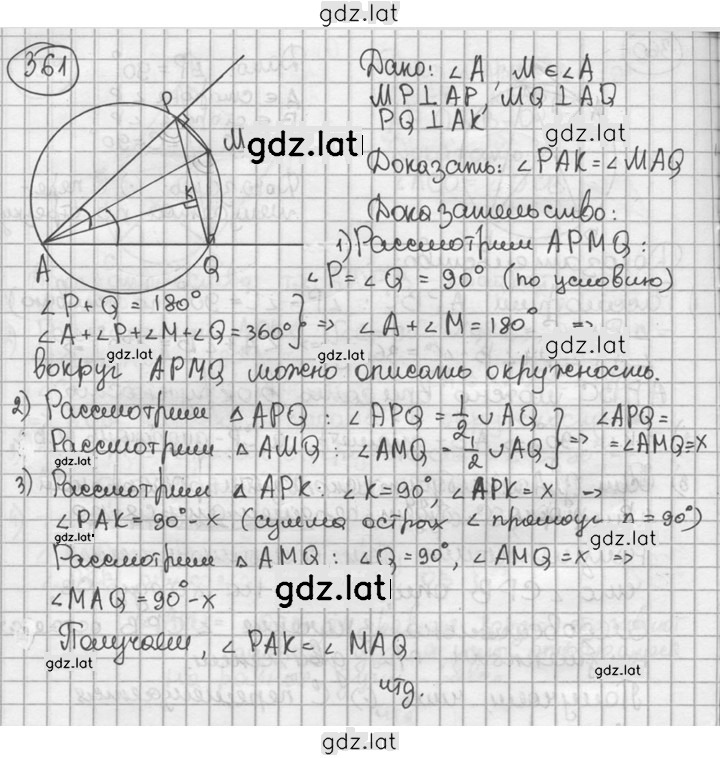 gdz.lat
361
Дано: ∠A M∈∠A
MP⊥AP, MQ⊥AQ
PQ⊥AK
gdz.lat
P
M
K
A
Q
gdz.lat
Доказать: ∠PAK=∠MAQ
gdz.lat
Доказательство:
1) Рассмотрим APMQ:
∠P=∠Q=90° (по условию)
∠P+Q=180°
∠A+∠P+∠M+∠Q=360° } => ∠A+∠M=180° =>
gdz.lat
gdz.lat
вокруг APMQ можно описать окружность.
2) Рассмотрим △APQ: ∠APQ=1/2 ∪AQ
Рассмотрим △AMQ: ∠AMQ=1/2 ∪AQ } => ∠APQ=
=∠AMQ=x
gdz.lat
gdz.lat
3) Рассмотрим △APK: ∠K=90°, ∠APK=x =>
∠PAK=90°-x (сумма острых ∠ прямоуг п=90°)
gdz.lat
gdz.lat
Рассмотрим △AMQ: ∠Q=90°, ∠AMQ=x =>
gdz.lat
∠MAQ=90°-x
Получаем, ∠PAK=∠MAQ.
gdz.lat
gdz.lat
чтд.
gdz.lat